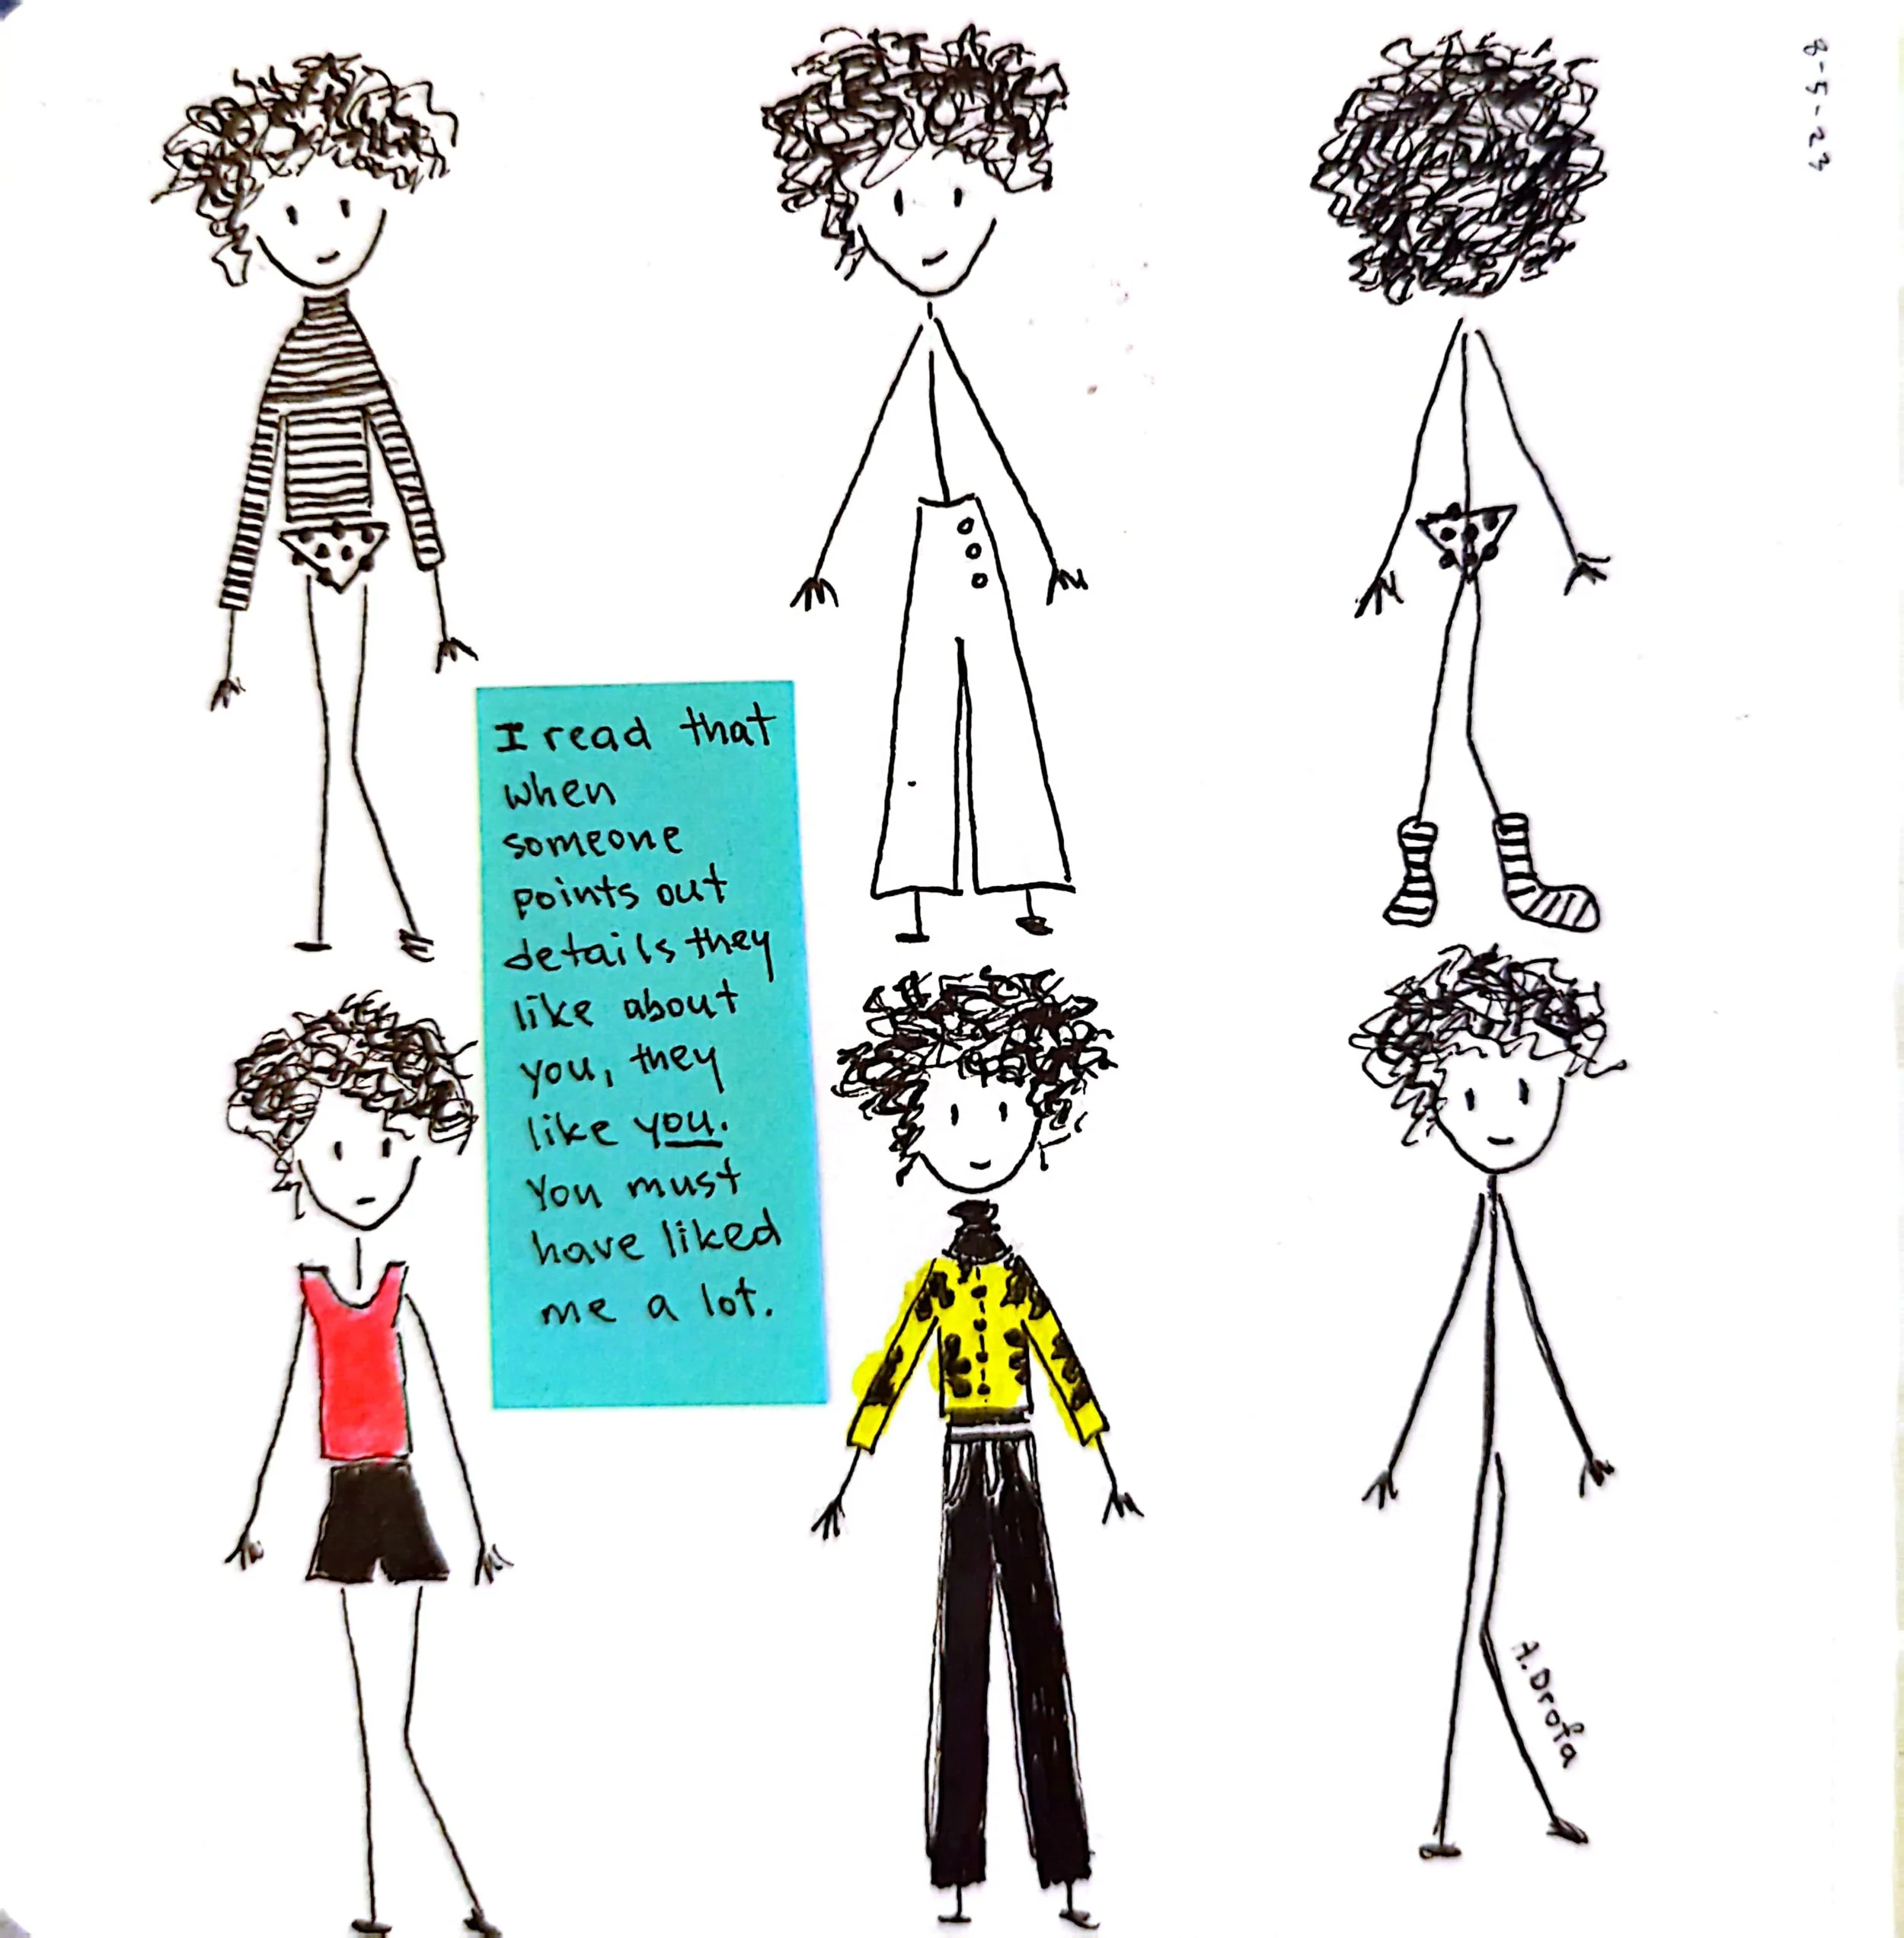 8-5-23
I read that
when
someone
points out
details they
like about
you, they
like you.
You must
have liked
me a lot.
A. Drofa